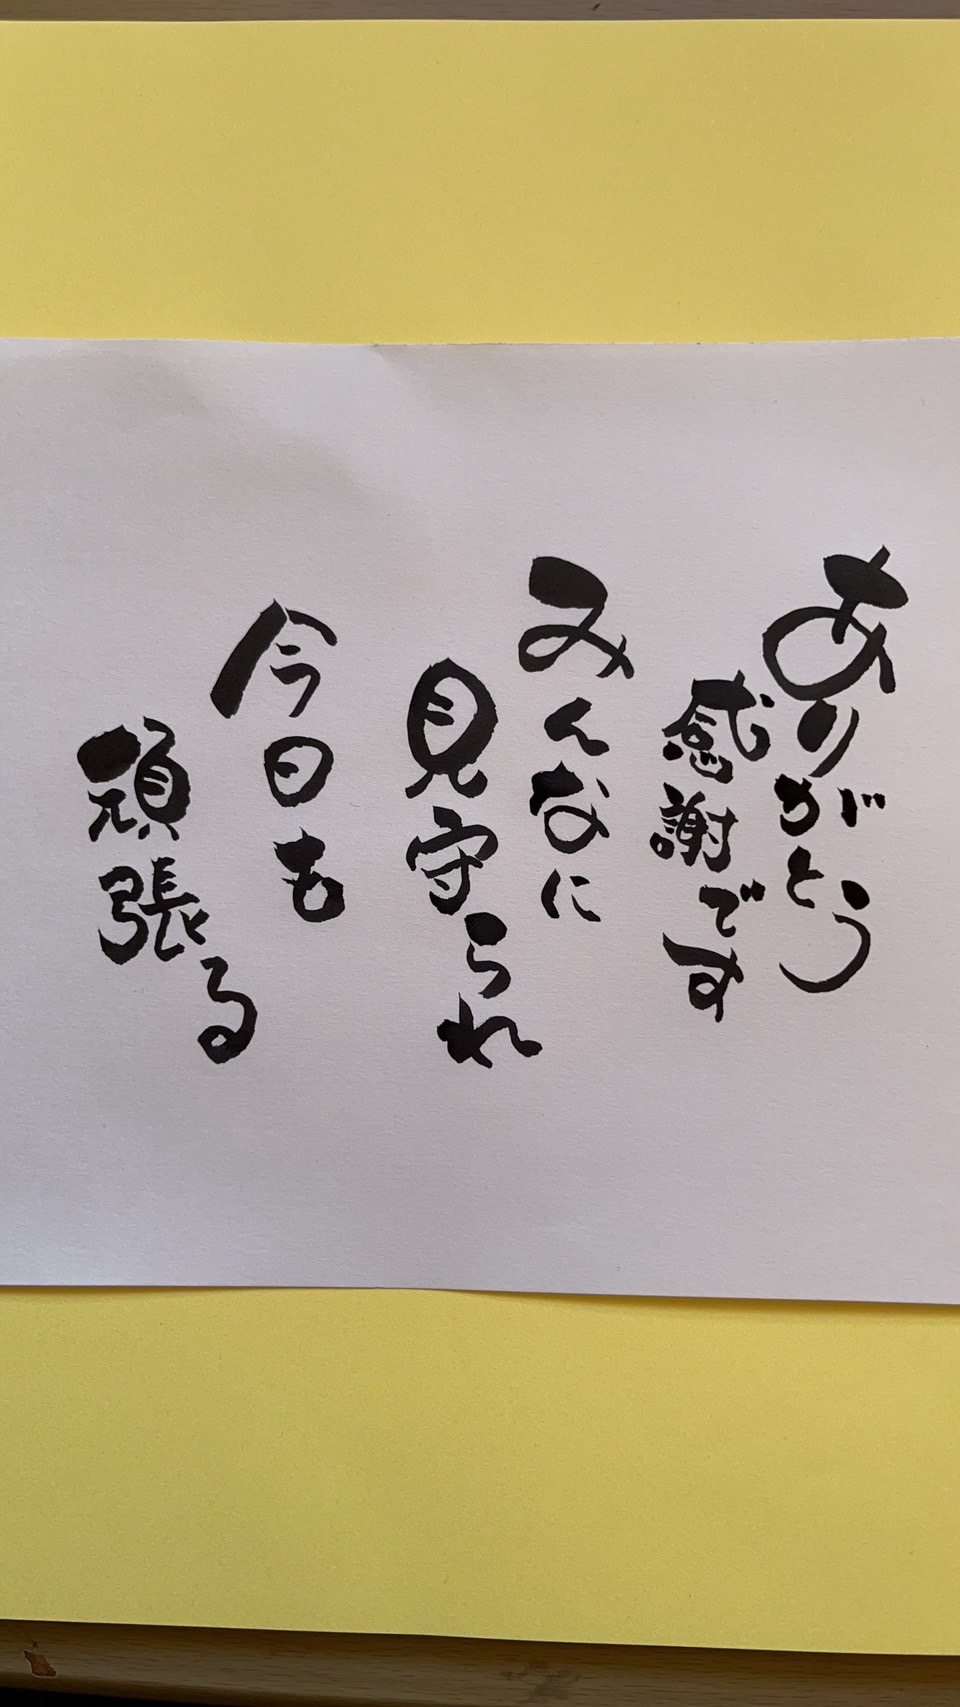 ありがとう
感謝です
みんなに
見守られ
今日も
頑張る